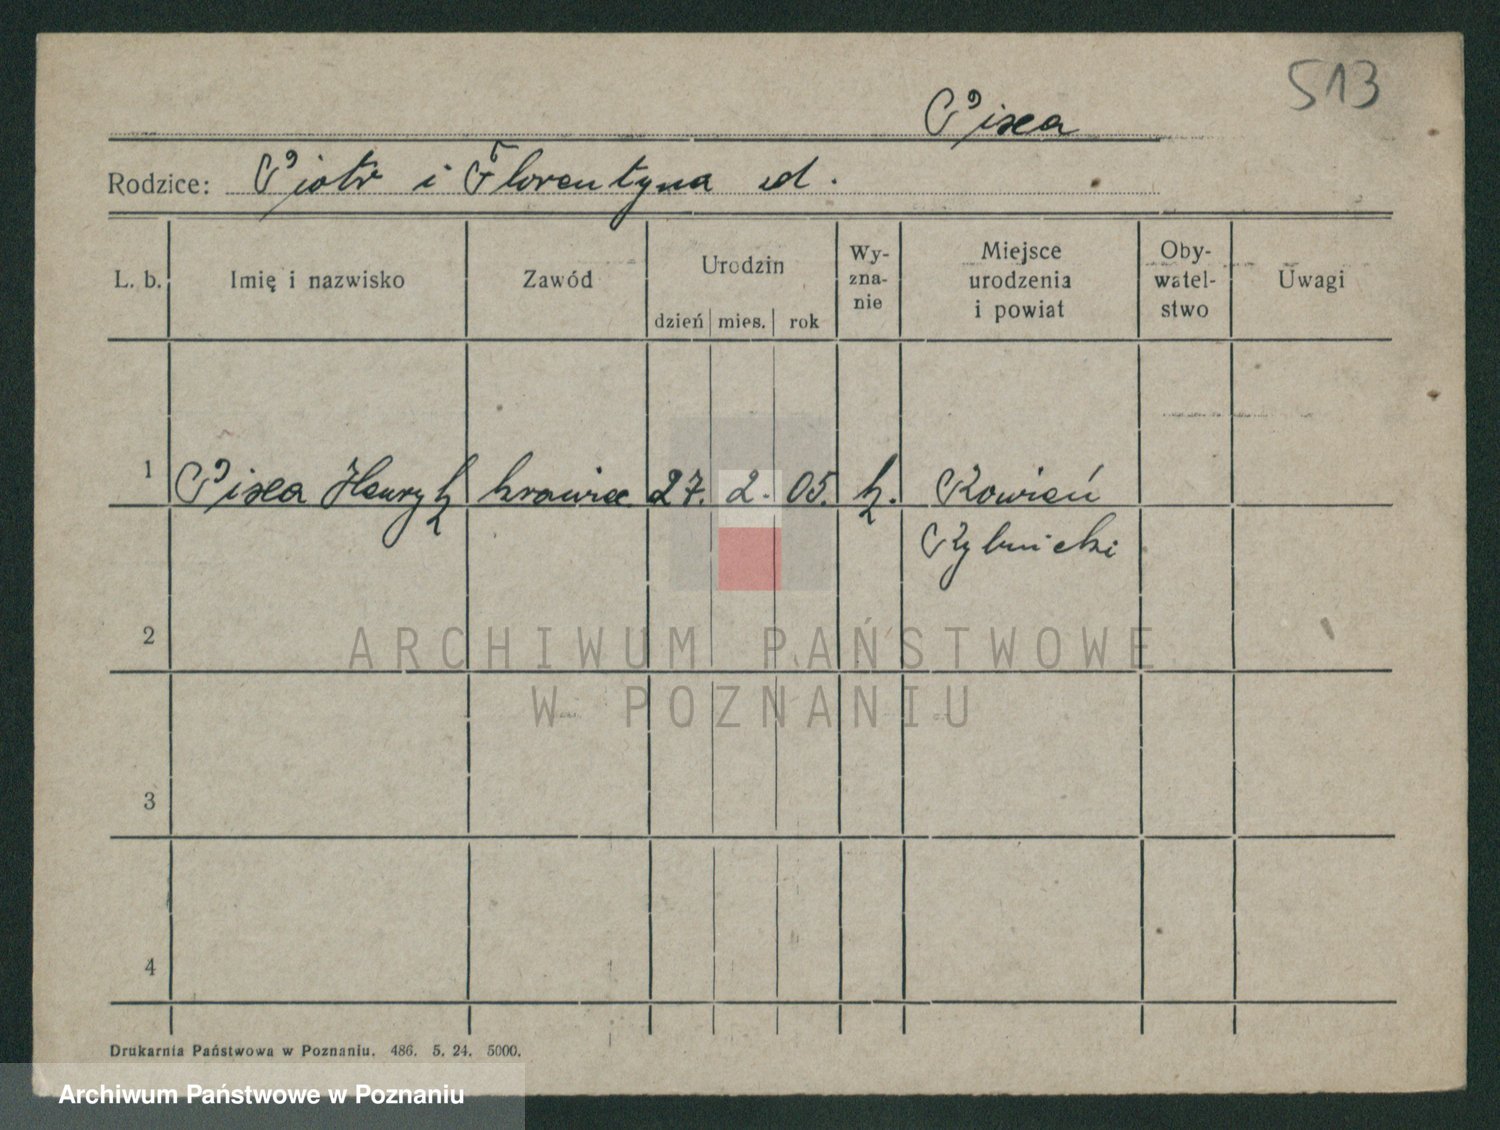 513
Pisca
Rodzice: Piotr i Florentyna
L. b. Imię i nazwisko Zawód Urodzin dzień mies. rok Wy-zna-nie Miejsce urodzenia i powiat Oby-watel-stwo Uwagi
1 Pisca Henryk krawiec 27. 2. 05. k. Kowień
Rybnicki
2
ARCHIWUM PAŃSTWOWE
W POZNANIU
3
4
Drukarnia Państwowa w Poznaniu. 486. 5. 24. 5000.
Archiwum Państwowe w Poznaniu